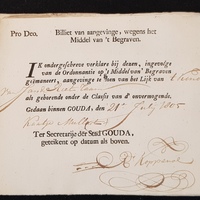 Pro Deo. Billiet van aangevinge, wegens het
Middel van 't Begraven.
IK ondergeschreve verklare by dezen, ingevolge
van de Ordonnantie op 't Middel van' Begraven
geëmaneert, aangevinge te doen van het Lyk van
als gehoorende onder de Classis van d' onvermogende.
Gedaan binnen GOUDA, den 21e July 1805
Ter Secretarije der Stad GOUDA,
getekent op datum als boven.